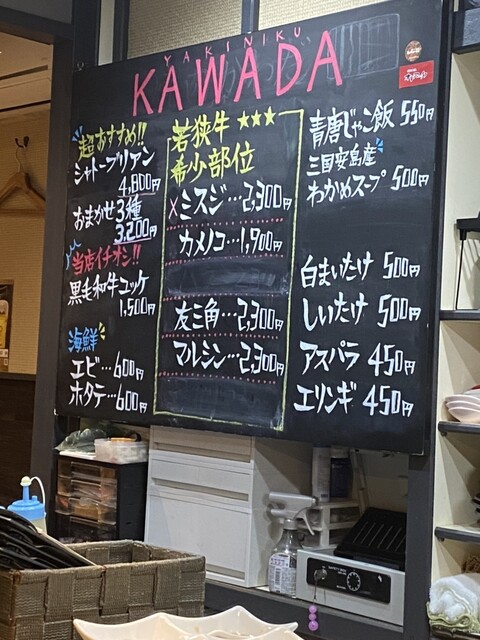 YAKINIKU
KAWADA
超おすすめ!!
シャトーブリアン
4,800円
おまかせ3種
3,200円
当店イチオシ!!
黒毛和牛ユッケ
1,500円
海鮮
エビ…600円
ホタテ…600円
若狭牛★★★
希少部位
×ミスジ…2,300円
カメノコ…1,900円
友三角…2,300円
マルシン…2,300円
青唐じゃこ飯 550円
三国安島産
わかめスープ 500円
白まいたけ 500円
しいたけ 500円
アスパラ 450円
エリンギ 450円